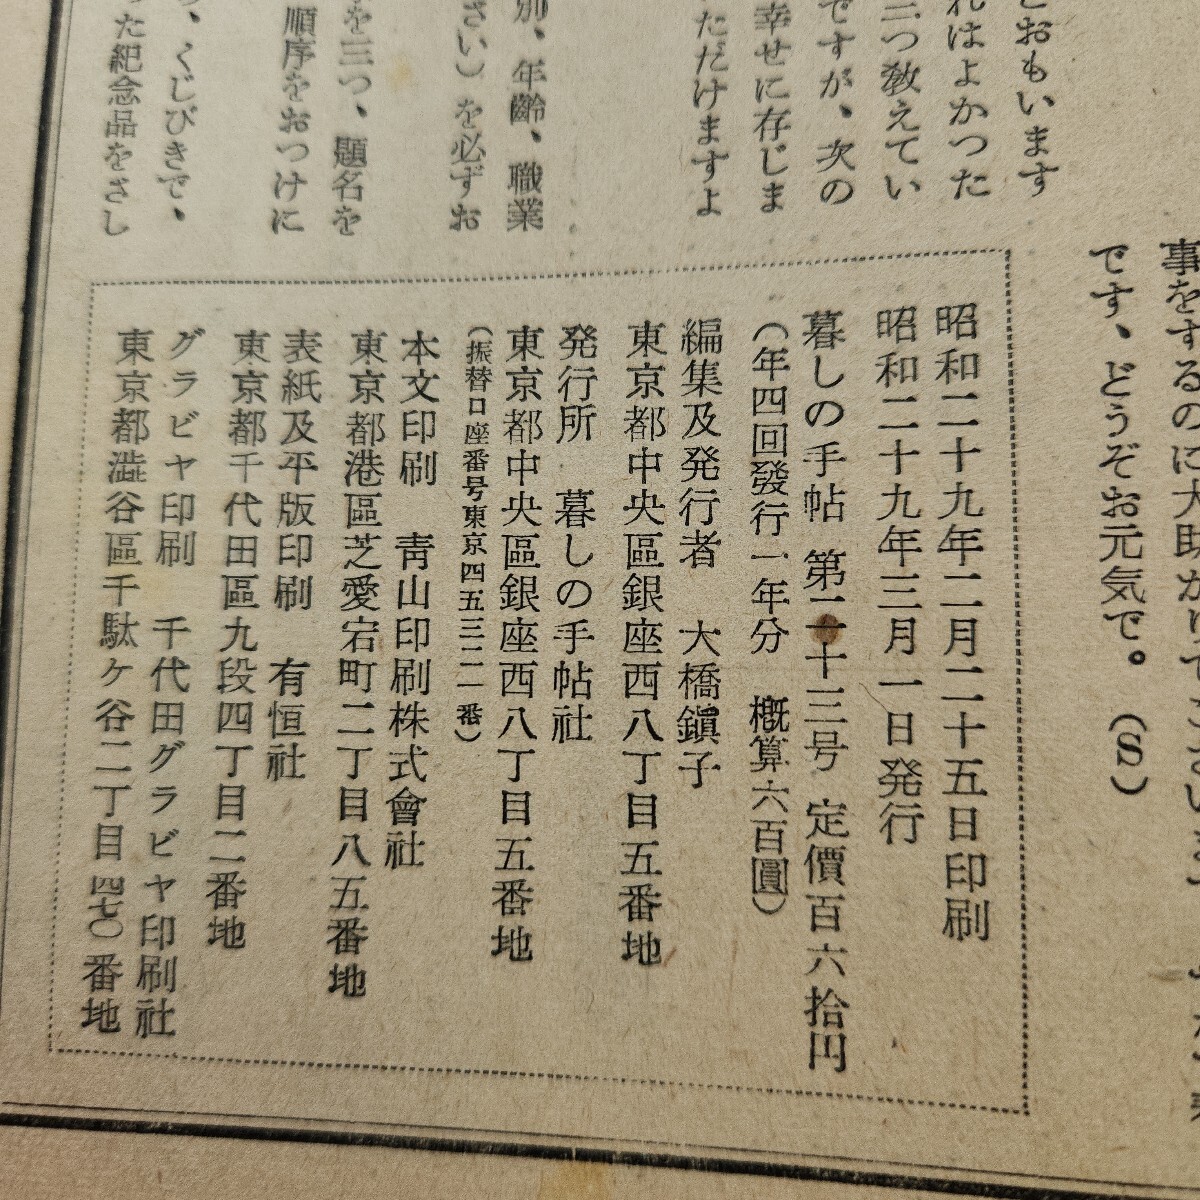 とおもいます
れはよかつた
三つ教えてい
ですが、次の
幸せに存じま
ただけますよ
別、年齢、職業
さい）を必ずお
を三つ、題名を
順序をおつけに
、くじびきで、
た紀念品をさし
事をするのに大助かりでございます
です、どうぞお元気で。（S）
昭和二十九年二月二十五日印刷
昭和二十九年三月一日発行
暮しの手帖 第二十三号 定價百六拾円
（年四回發行一年分 概算六百圓）
編集及発行者 大橋鎭子
東京都中央區銀座西八丁目五番地
発行所 暮しの手帖社
東京都中央區銀座西八丁目五番地
（振替口座番号東京四五三二一番）
本文印刷 靑山印刷株式會社
東京都港區芝愛宕町二丁目八五番地
表紙及平版印刷 有恒社
東京都千代田區九段四丁目二番地
グラビヤ印刷 千代田グラビヤ印刷社
東京都澁谷區千駄ケ谷二丁目四七〇番地